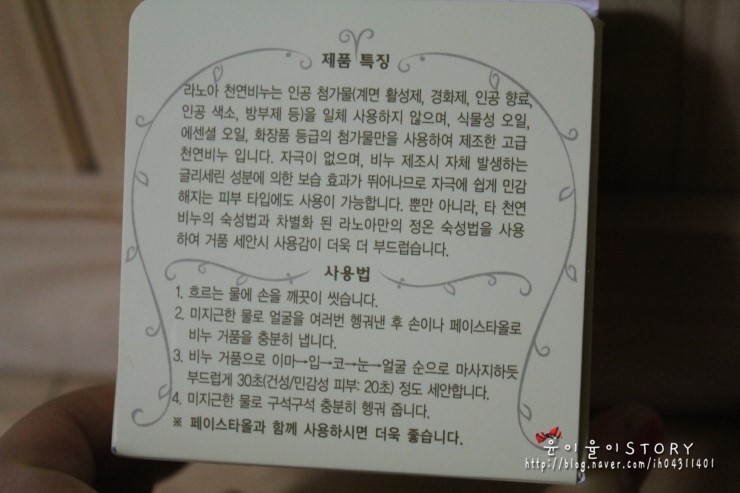 제품 특징
라노아 천연비누는 인공 첨가물(계면 활성제, 경화제, 인공 향료,
인공 색소, 방부제 등)을 일체 사용하지 않으며, 식물성 오일,
에센셜 오일, 화장품 등급의 첨가물만을 사용하여 제조한 고급
천연비누 입니다. 자극이 없으며, 비누 제조시 자체 발생하는
글리세린 성분에 의한 보습 효과가 뛰어나므로 자극에 쉽게 민감
해지는 피부 타입에도 사용이 가능합니다. 뿐만 아니라, 타 천연
비누의 숙성법과 차별화 된 라노아만의 정온 숙성법을 사용
하여 거품 세안시 사용감이 더욱 더 부드럽습니다.
사용법
1. 흐르는 물에 손을 깨끗이 씻습니다.
2. 미지근한 물로 얼굴을 여러번 헹궈낸 후 손이나 페이스타올로
비누 거품을 충분히 냅니다.
3. 비누 거품으로 이마→입→코→눈→얼굴 순으로 마사지하듯
부드럽게 30초(건성/민감성 피부: 20초) 정도 세안합니다.
4. 미지근한 물로 구석구석 충분히 헹궈 줍니다.
※ 페이스타올과 함께 사용하시면 더욱 좋습니다.
윤이율이STORY
http://blog.naver.com/ih04311401